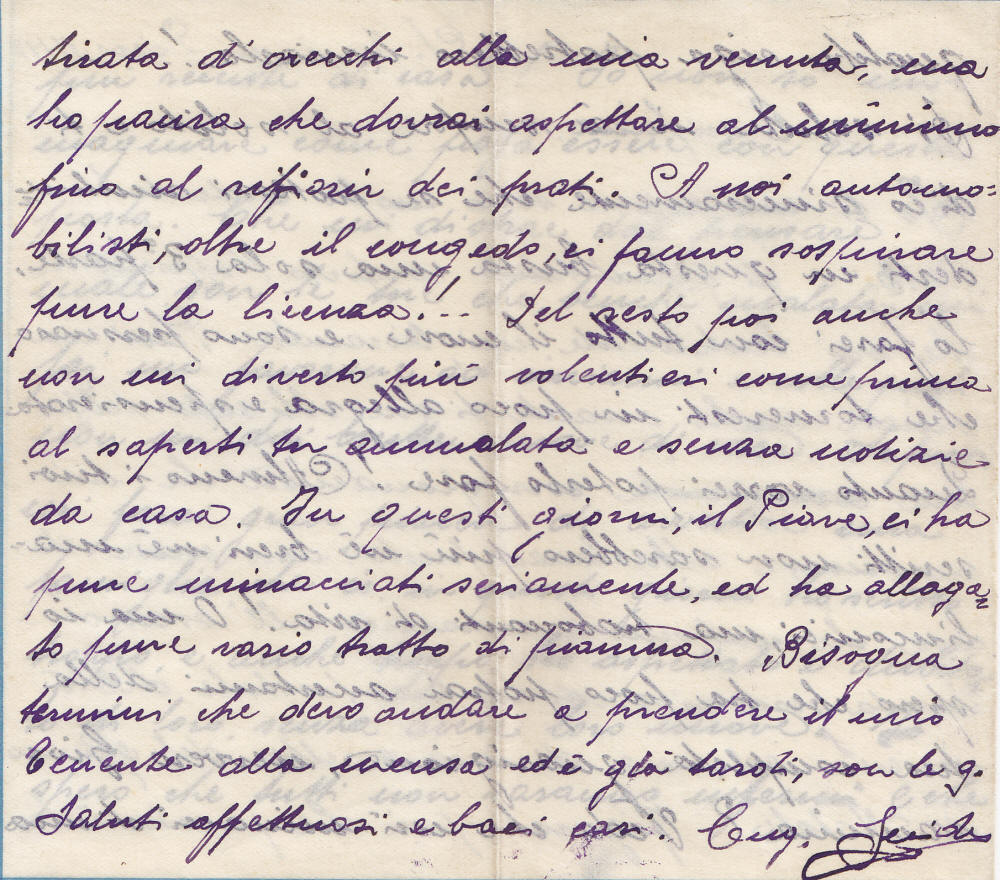 tirata d'orecchi alla mia venuta, ma
ho paura che dovrai aspettare al minimo
fino al rifiorir dei prati. A noi automo=
bilisti, oltre il congedo, ci fanno sospirare
pure la licenza!.. Del resto poi anche
non mi diverto più volentieri come prima
al saperti tu ammalata e senza notizie
da casa. In questi giorni, il Piave, ci ha
pure minacciati seriamente, ed ha allaga=
to pure vario tratto di pianura. Bisogna
termini che devo andare a prendere il mio
Tenente alla mensa ed è già tardi, son le 9.
Saluti affettuosi e baci cari. Cug.